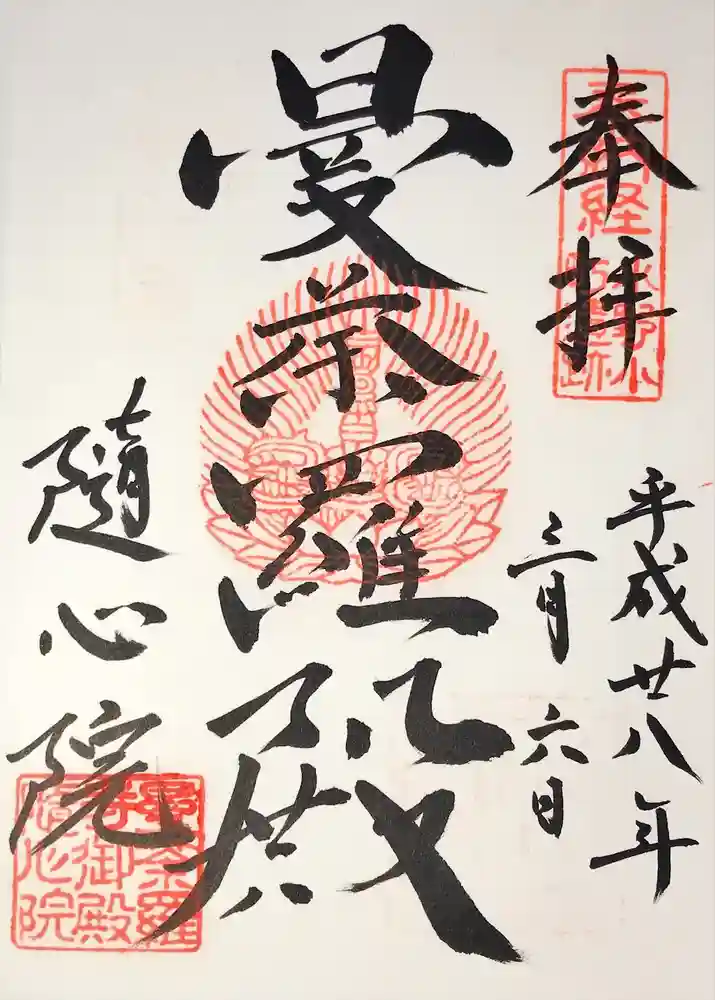 奉拝
平成廿八年
三月六日
曼荼羅殿
隨心院
曼荼羅
寺御殿
隨心院